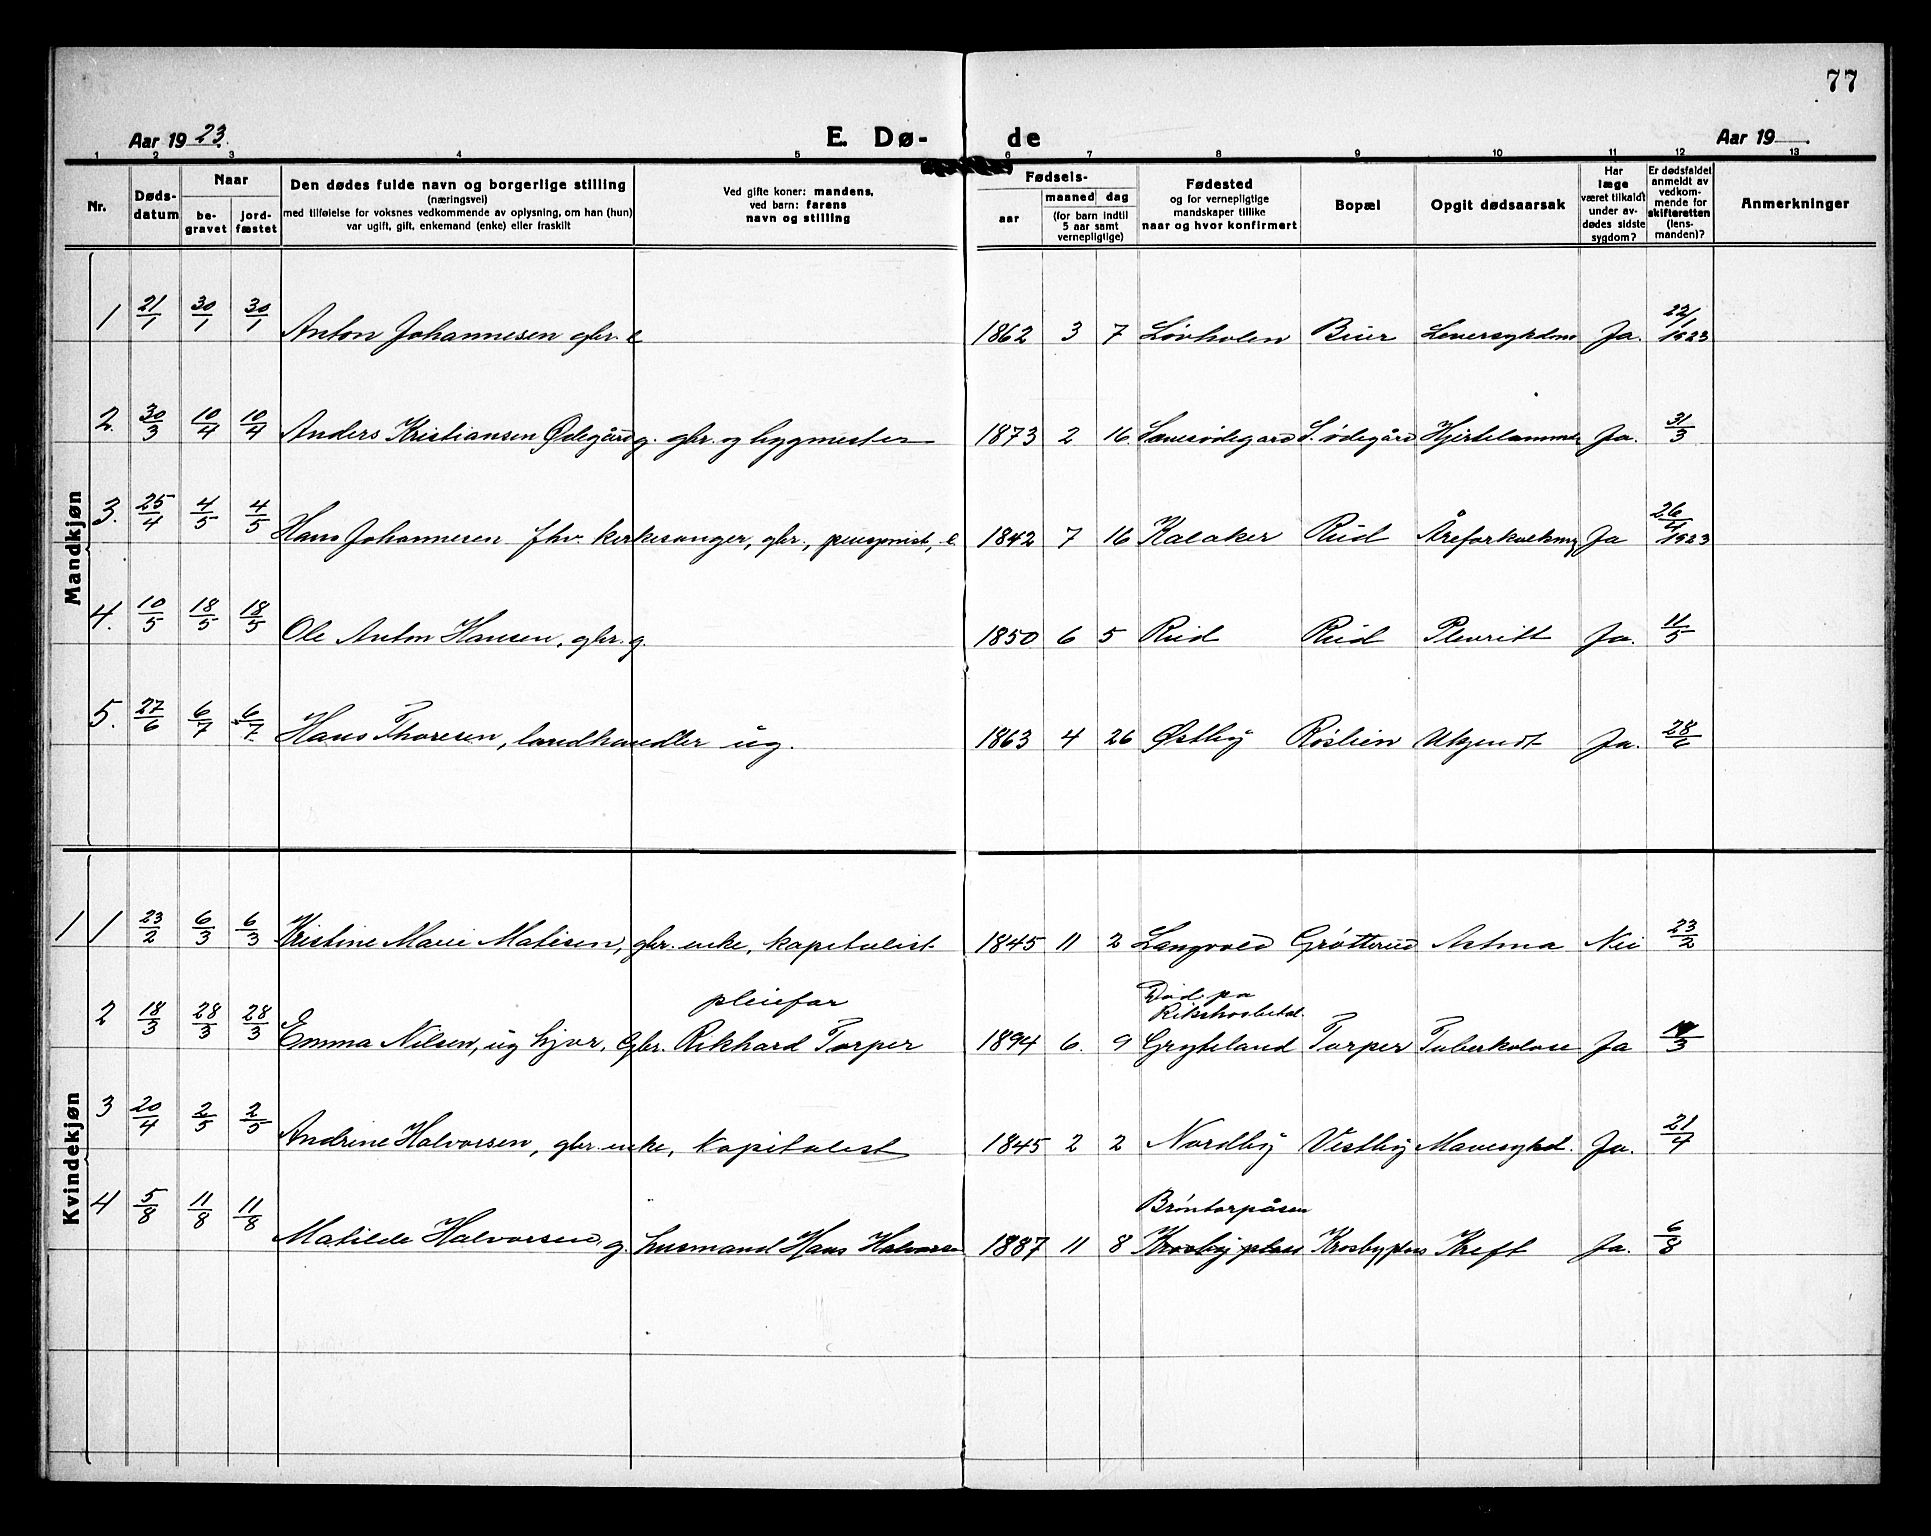 77
Aar 19 23.
E. Dø- de
Aar 19
1 2 3 4 5 6 7 8 9 10 11 12 13
Nr.
Døds-datum
Naar
be-gravet
jord-fæstet
Den dødes fulde navn og borgerlige stilling
(næringsvei)
med tilføielse for voksnes vedkommende av oplysning, om han (hun)
var ugift, gift, enkemand (enke) eller fraskilt
Ved gifte koner: mandens,
ved barn: farens
navn og stilling
Fødsels-
aar
maaned dag
(for barn indtil
5 aar samt
vernepligtige)
Fødested
og for vernepligtige
mandskaper tillike
naar og hvor konfirmert
Bopæl
Opgit dødsaarsak
Har
læge
været tilkaldt
under av-
dødes sidste
sygdom?
Er dødsfaldet
anmeldt av
vedkom-
mende for
skifteretten
(lens-
manden)?
Anmerkninger
Mandkjøn
1 21/1 30/1 30/1 Anton Johannesen gbr. e 1862 3 7 Løvholen Bier Leversykdom Ja. 22/1 1923
2. 30/3 10/4 10/4 Anders Kristiansen Ødegård g. gbr. og bygmester 1873 2 16. S. ødegård Hjertelammelse Ja. 31/3
3. 25/4 4/5 4/5 Hans Johannesen fhv. kirkesanger, gbr., pensjonist, e. 1842 7 16 Kalaker Rud Åreforkalkning Ja 26/4 1923
4. 10/5 18/5 18/5 Ole Anton Hansen, gbr. g. 1850 6 5 Rud Rud Plevritt Ja. 11/5
5. 27/6 6/7 6/7 Hans Thoresen, landhandler ug. 1863 4 26 Østby Røslien Ukjendt Ja. 28/6
Kvindekjøn
1 1 23/2 6/3 6/3 Kristine Marie Matisen, gbr. enke, kapitalist 1845 11 2 Langvold Grøtterud Astma Nei 23/2
pleiefar
Død pa
Rikshospital.
2 18/3 28/3 28/3 Emma Nilsen, ug hjor, Gbr. Rikhard Torper 1894 6. 9 Gryteland Torper Tuberkolose Ja
3 20/4 2/5 2/5 Andrine Halvorsen, gbr. enke, kapitalist 1845 2 2 Nordby Vestby Mavesykd. Ja. 21/4
Brøntorpåsen
4 5/8 11/8 11/8 Matilde Halvorsen, g. husmand Hans Halvorsen 1887 11 8 Krosby plass Krosbyplass Kreft Ja. 6/8